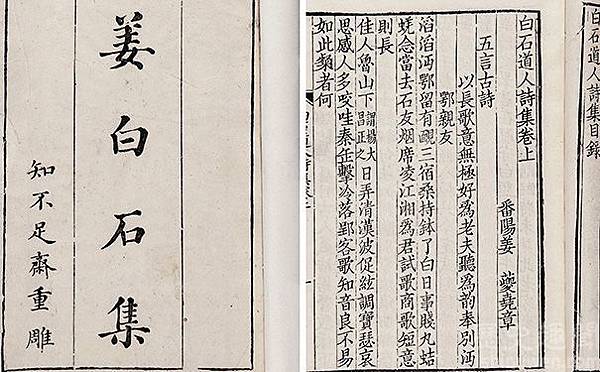 姜白石集
知不足齋重雕
白石道人詩集目録
白石道人詩集卷上
番陽姜 夔堯章
五言古詩
以長歌意無極好爲老夫聽爲韵奉别沔
鄂親友
滔滔沔鄂留有靦三宿桑持鉢了白日事賤九蛣
蜣念當去石友烟席凌江湘爲君試歌商歌短意
則長
佳人魯山下謂楊大昌正之日弄清漢波促絃調寶瑟哀
思感人多咬哇秦缶擊冷落郢客歌知音良不易
如此類者何